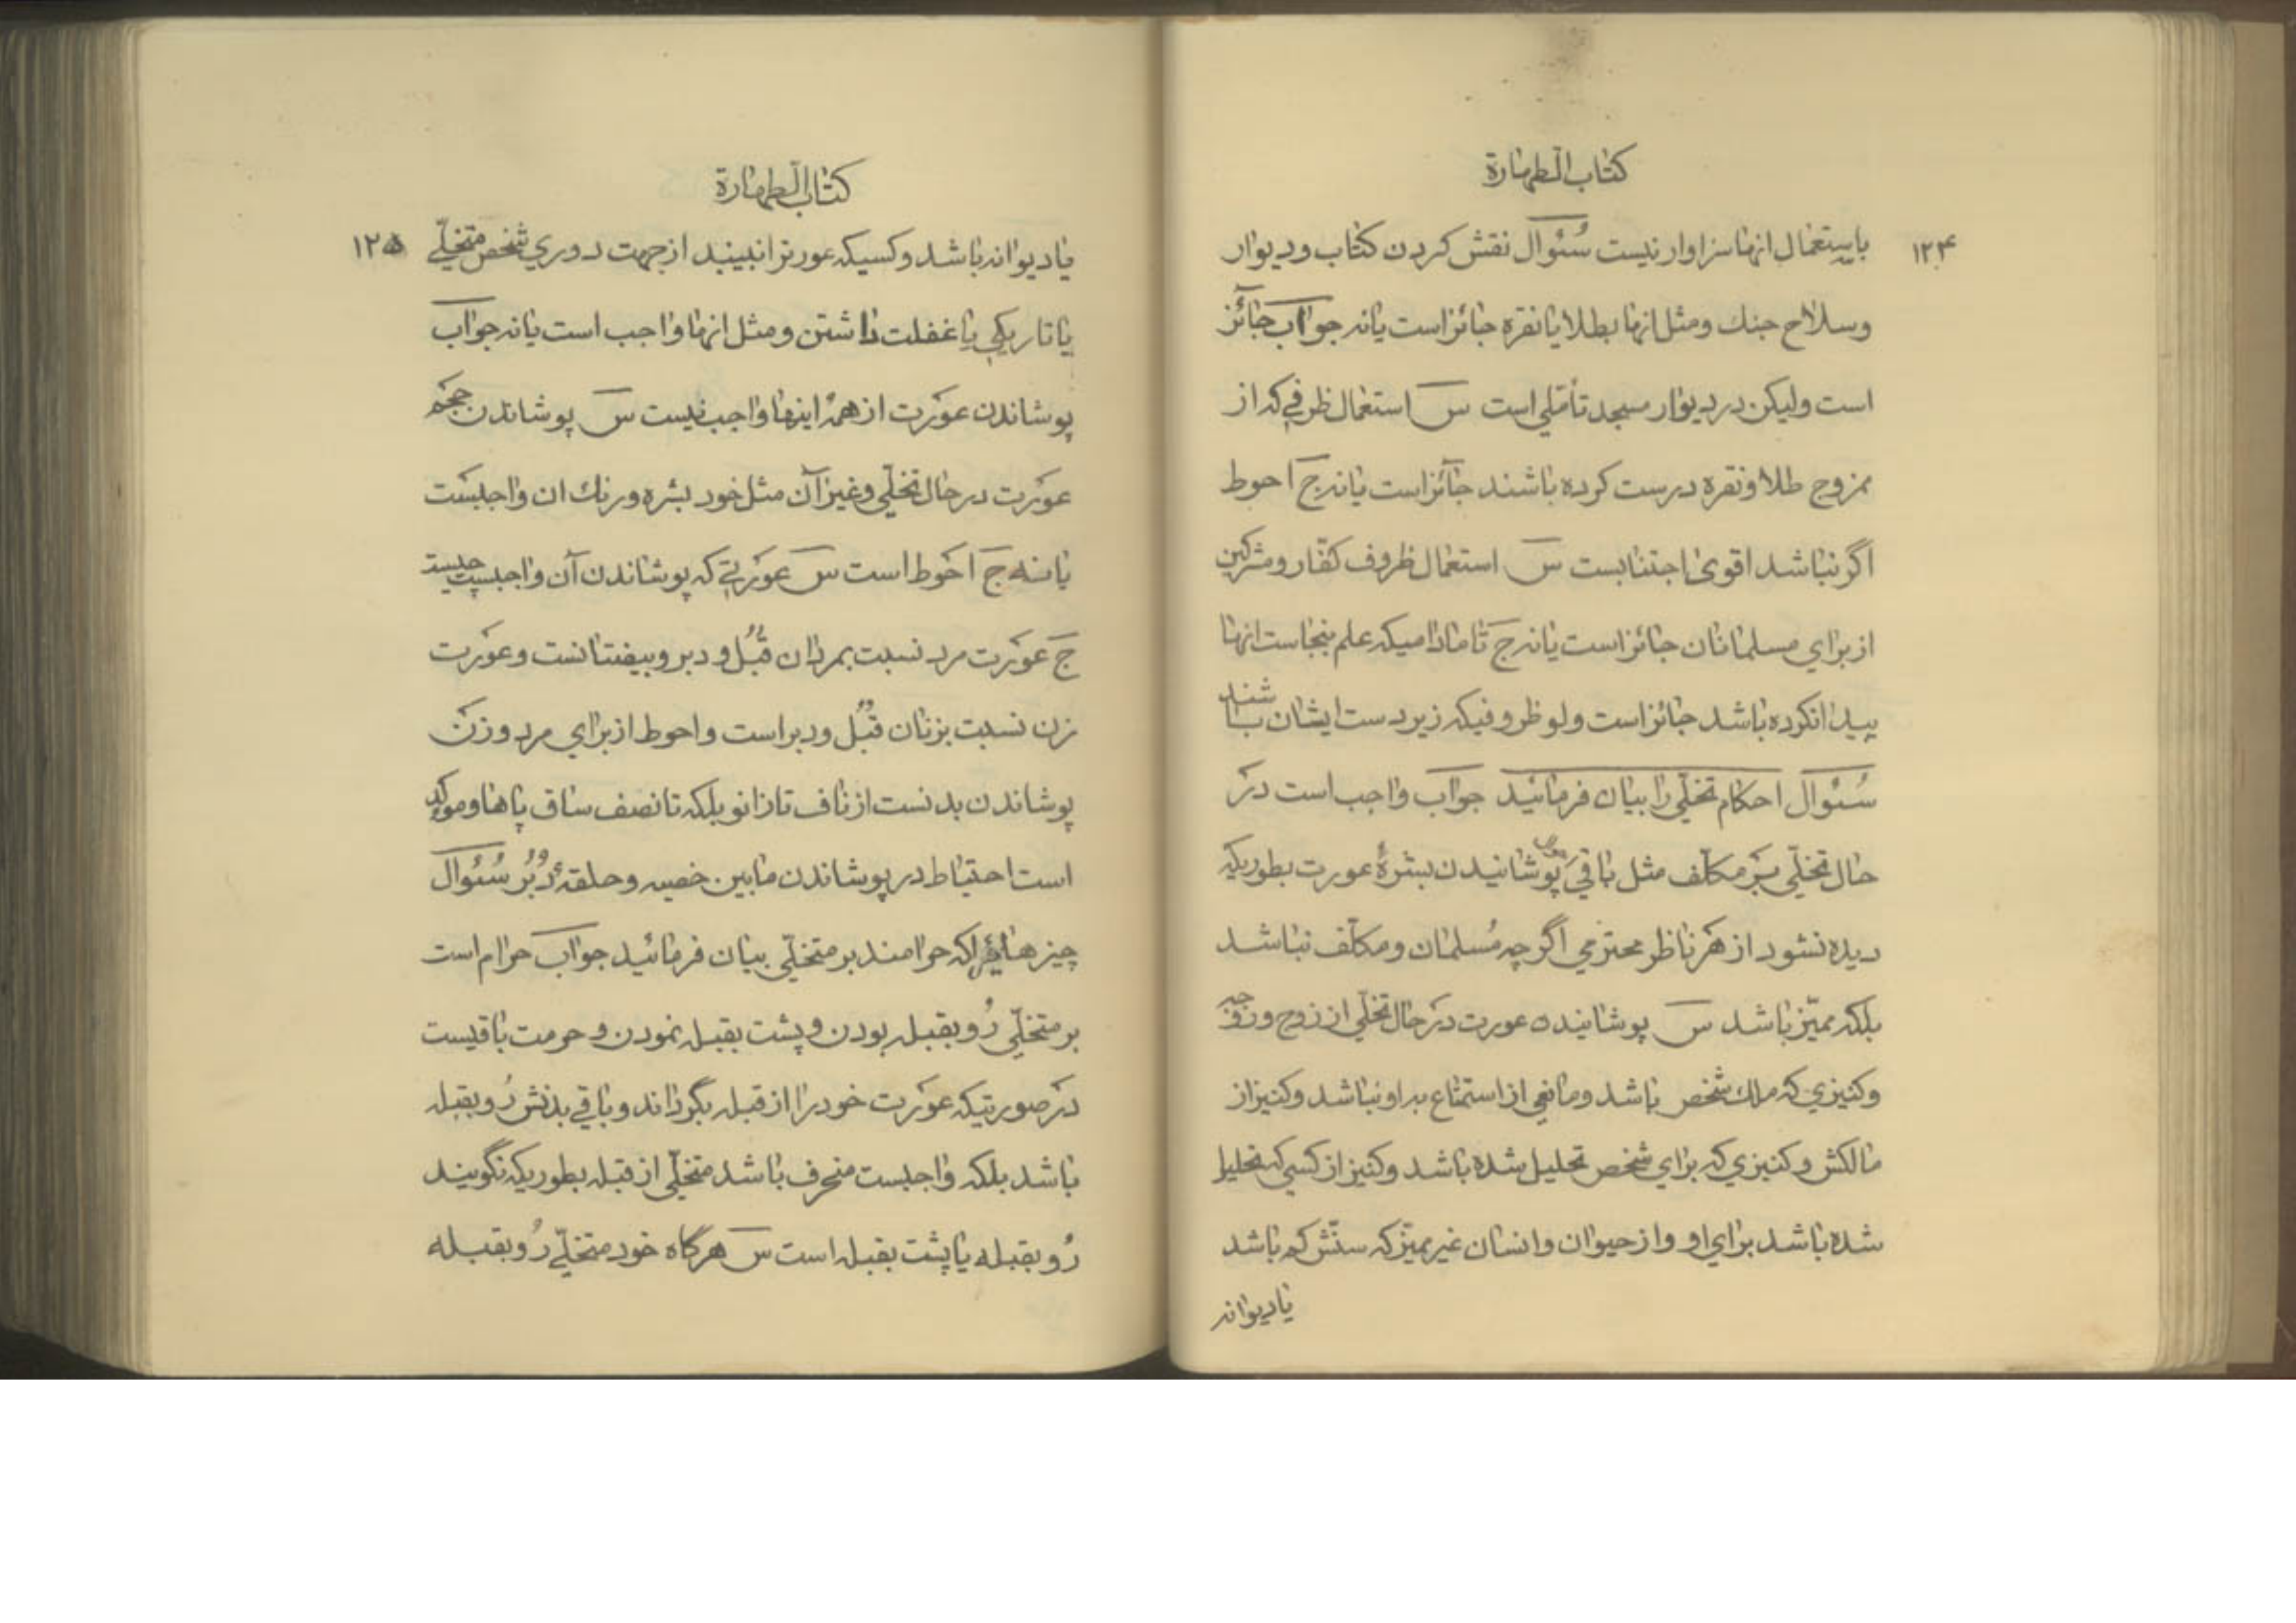 كتاب الطهارة
۱۲۴
باستعمال انها سزاوار نیست سُئوال نقش کردن کتاب و دیوار
وسلاح جنك ومثل انها بطلا یا نقره جائز است یا نه جوابَ جائز
است ولیکن در دیوار مسجد تأملی است س استعمال ظرفی که از
ممزوج طلا و نقره درست کرده باشند جائز است یا نه ج احوط
اگر نباشد اقوی اجتنابست س استعمال ظروف کفّار ومشرکین
از برای مسلمانان جائز است یا نه ج تا مادامیکه علم بنجاست انها
پیدا نکرده باشد جائز است ولو ظروفیکه زیر دست ایشان باشند
سُئوال احکام تخلّی را بیان فرمائید جواب واجب است در
حال تخلّی بر مکلّف مثل باقی پوشانیدن بشرهٔ عورت بطوریکه
دیده نشود از هر ناظر محترمی اگرچه مُسلمان ومکلّف نباشد
بلکه ممیّز باشد س پوشانیده عورت در حال تخلّی از زوج وزوجه
وکنیزی که ملك شخص باشد ومانعی از استمتاع به او نباشد وکنیز از
مالکش وکنیزی که برای شخص تحلیل شده باشد وکنیز از کسی که تحلیل
شده باشد برای او واز حیوان وانسان غیر ممیّز که سنّش کم باشد
یا دیوانه
كتاب الطهارة
۱۲۵
یا دیوانه باشد وکسیکه عورترا نبیند از جهت دوری شخص متخلّی
یا تاریکی یا غفلت داشتن ومثل انها واجب است یا نه جوابَ
پوشاندن عورت از همهٔ اینها واجب نیست س پوشاندن حجم
عورت در حال تخلّی وغیر آن مثل خود بشره ورنك ان واجبست
یا نه ج احوط است س عورتی که پوشاندن آن واجبست چیست
ج عورت مرد نسبت بمردان قُبُل و دبر وبیضتانست وعورت
زن نسبت بزنان قُبُل ودبر است واحوط از برای مرد وزن
پوشاندن بدنست از ناف تا زانو بلکه تا نصف ساق پاها وموکد
است احتیاط در پوشاندن مابین خصیه وحلقهٔ دُبُر سُئوال
چیزهائیرا که حرامند بر متخلّی بیان فرمائید جوابَ حرام است
بر متخلّی رُو بقبله بودن و پشت بقبله نمودن و حرمت باقیست
در صورتیکه عورت خود را از قبله بگرداند و باقی بدنش رُو بقبله
باشد بلکه واجبست منحرف باشد متخلّی از قبله بطوریکه نگویند
رُو بقبله یا پشت بقبله است س هرگاه خود متخلّی رُو بقبله